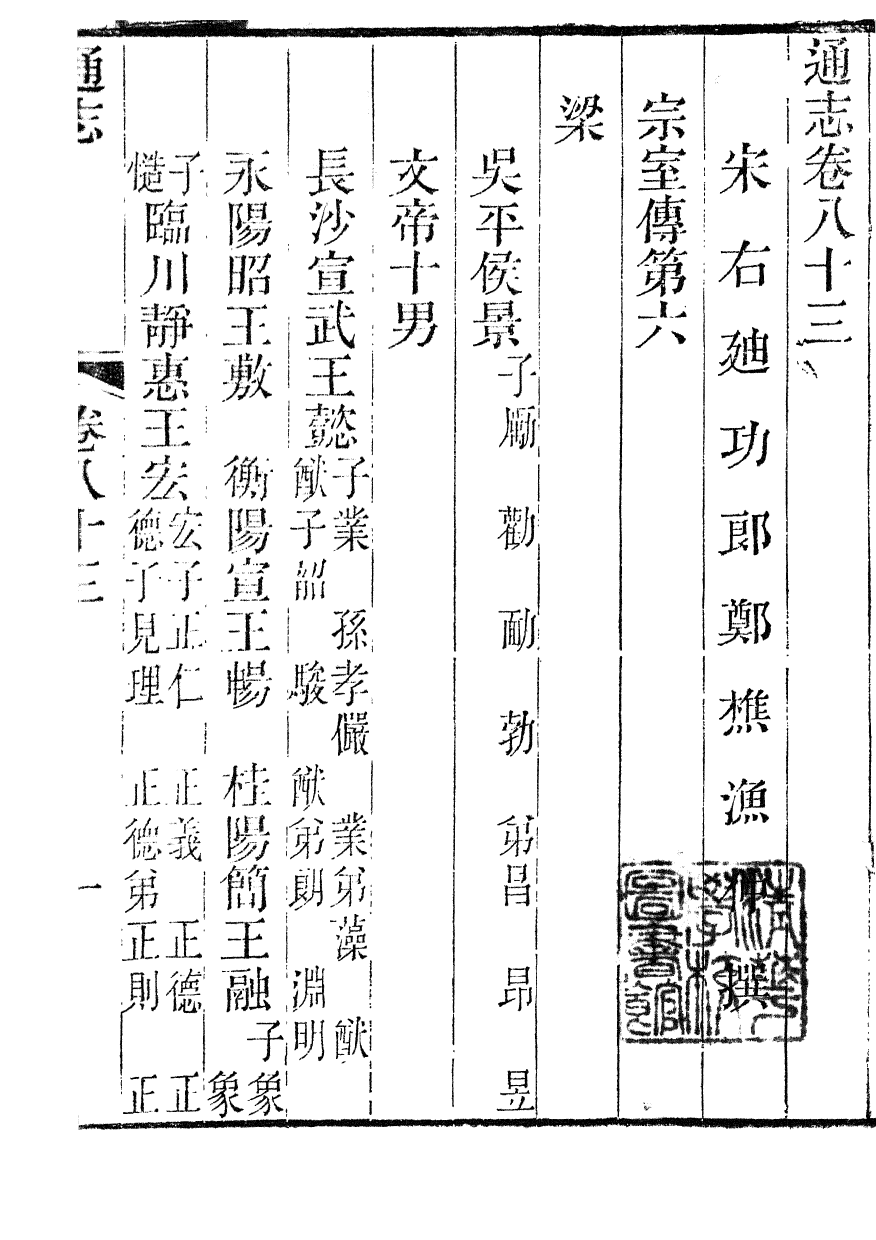 通志卷八十三
宋右廸功郎鄭樵漁仲撰
宗室傳第六
梁
吳平侯景子勵 勸 勔 勃 弟昌 昂 昱
文帝十男
長沙宣武王懿子業 孫孝儼 業弟藻 猷
猷子韶 駿 猷弟朗 淵明
永陽昭王敷 衡陽宣王暢 桂陽簡王融子象
象
子慥臨川靜惠王宏宏子正仁 正義 正德 正
德子見理 正德弟正則 正
通志 卷八十三 一
清華學校圖書館